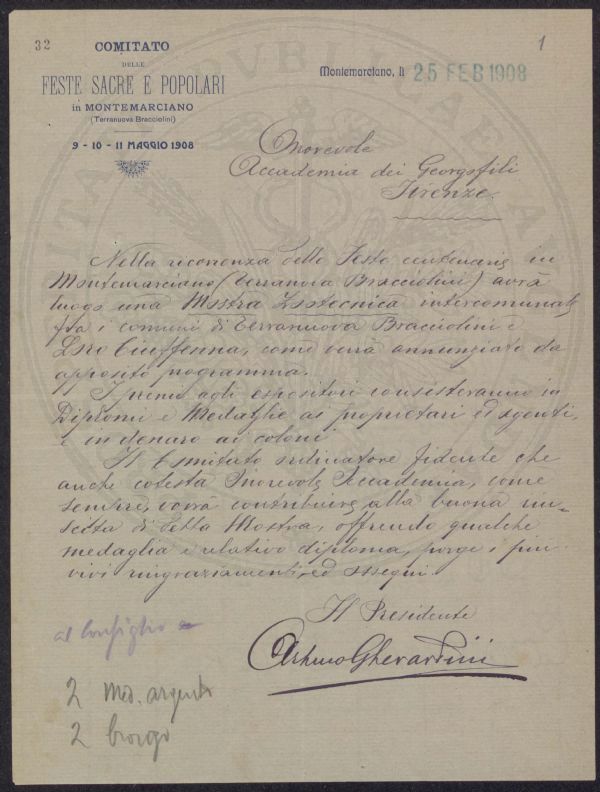 32
1
COMITATO
DELLE
FESTE SACRE E POPOLARI
in MONTEMARCIANO
(Terranuova Bracciolini)
9 - 10 - 11 MAGGIO 1908
Montemarciano, li 25 FEB 1908
Onorevole
Accademia dei Georgofili
Firenze.
Nella ricorrenza delle Feste centenarie in
Montemarciano (Terranova Bracciolini) avrà
luogo una Mostra Zootecnica intercomunale
fra i comuni di Terranuova Bracciolini e
Loro Ciuffenna, come verrà annunziato da
apposito programma.
I premi agli espositori consisteranno in
Diplomi e Medaglie ai proprietari ed agenti,
e in denaro ai coloni.
Il Comitato ordinatore fidente che
anche cotesta Onorevole Accademia, come
sempre, vorrà contribuire alla buona riu=
scita di detta Mostra, offrendo qualche
medaglia e relativo diploma, porge i più
vivi ringraziamenti ed ossequi.
Il Presidente
Arturo Gherardini
al Consiglio
2 Med. argento
2 bronzo